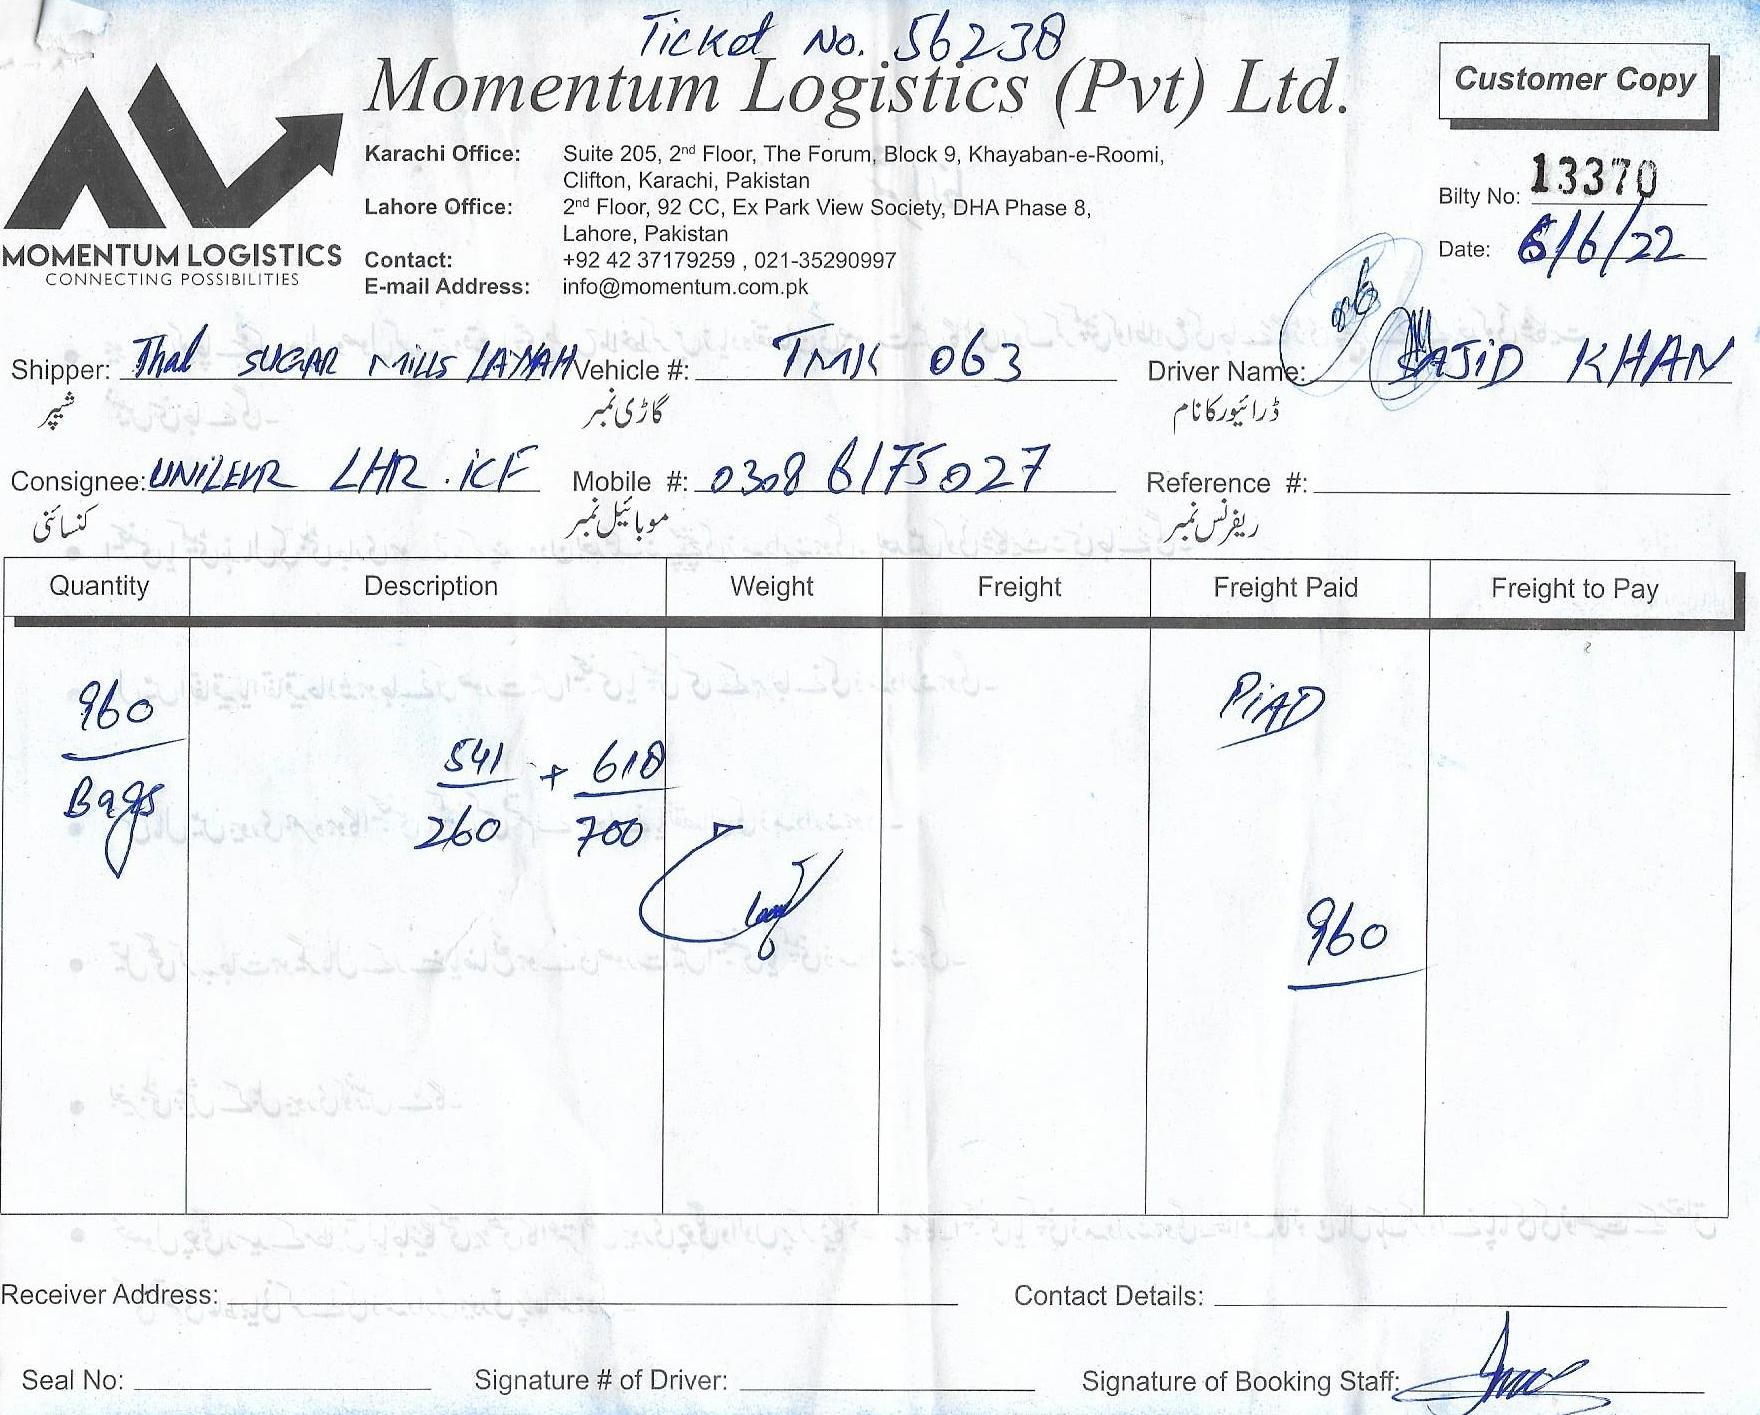 Ticket No. 56238
Momentum Logistics (Pvt) Ltd.
Customer Copy
MOMENTUM LOGISTICS
CONNECTING POSSIBILITIES
Karachi Office: Suite 205, 2nd Floor, The Forum, Block 9, Khayaban-e-Roomi,
Clifton, Karachi, Pakistan
Lahore Office: 2nd Floor, 92 CC, Ex Park View Society, DHA Phase 8,
Lahore, Pakistan
Contact: +92 42 37179259 , 021-35290997
E-mail Address: info@momentum.com.pk
Bilty No: 13370
Date: 6/6/22
Shipper: Thal SUGAR MILLS LAYYAH Vehicle #: TMK 063 Driver Name: SAJID KHAN
شیپر گاڑی نمبر ڈرائیور کا نام
Consignee: UNILEVR LHR. ICF Mobile #: 0308 6175027 Reference #:
کنسائنی موبائیل نمبر ریفرنس نمبر
Quantity Description Weight Freight Freight Paid Freight to Pay
960 PIAD
Bags 541 + 618
260 700
960
Receiver Address: Contact Details:
Seal No: Signature # of Driver: Signature of Booking Staff: